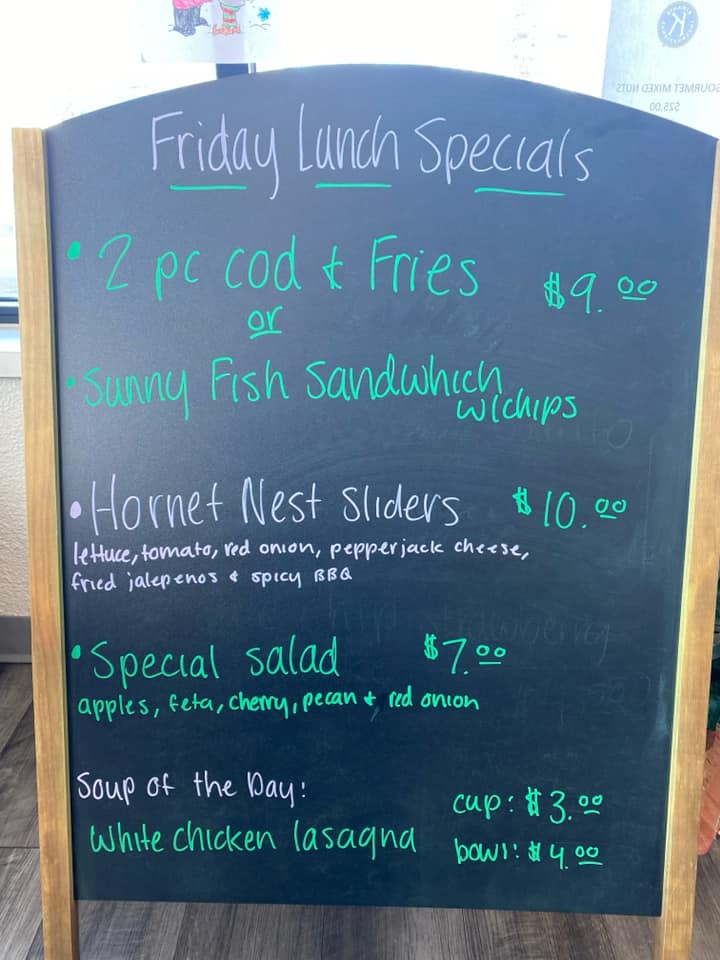 GOURMET MIXED NUTS
$25.00
Friday Lunch Specials
• 2 pc cod & Fries $9.00
or
• Sunny Fish Sandwhich
w/chips
• Hornet Nest Sliders $10.00
lettuce, tomato, red onion, pepperjack cheese,
fried jalepenos & spicy BBQ
• Special salad $7.00
apples, feta, cherry, pecan & red onion
Soup of the Day:
cup: $3.00
White chicken lasagna
bowl: $4.00